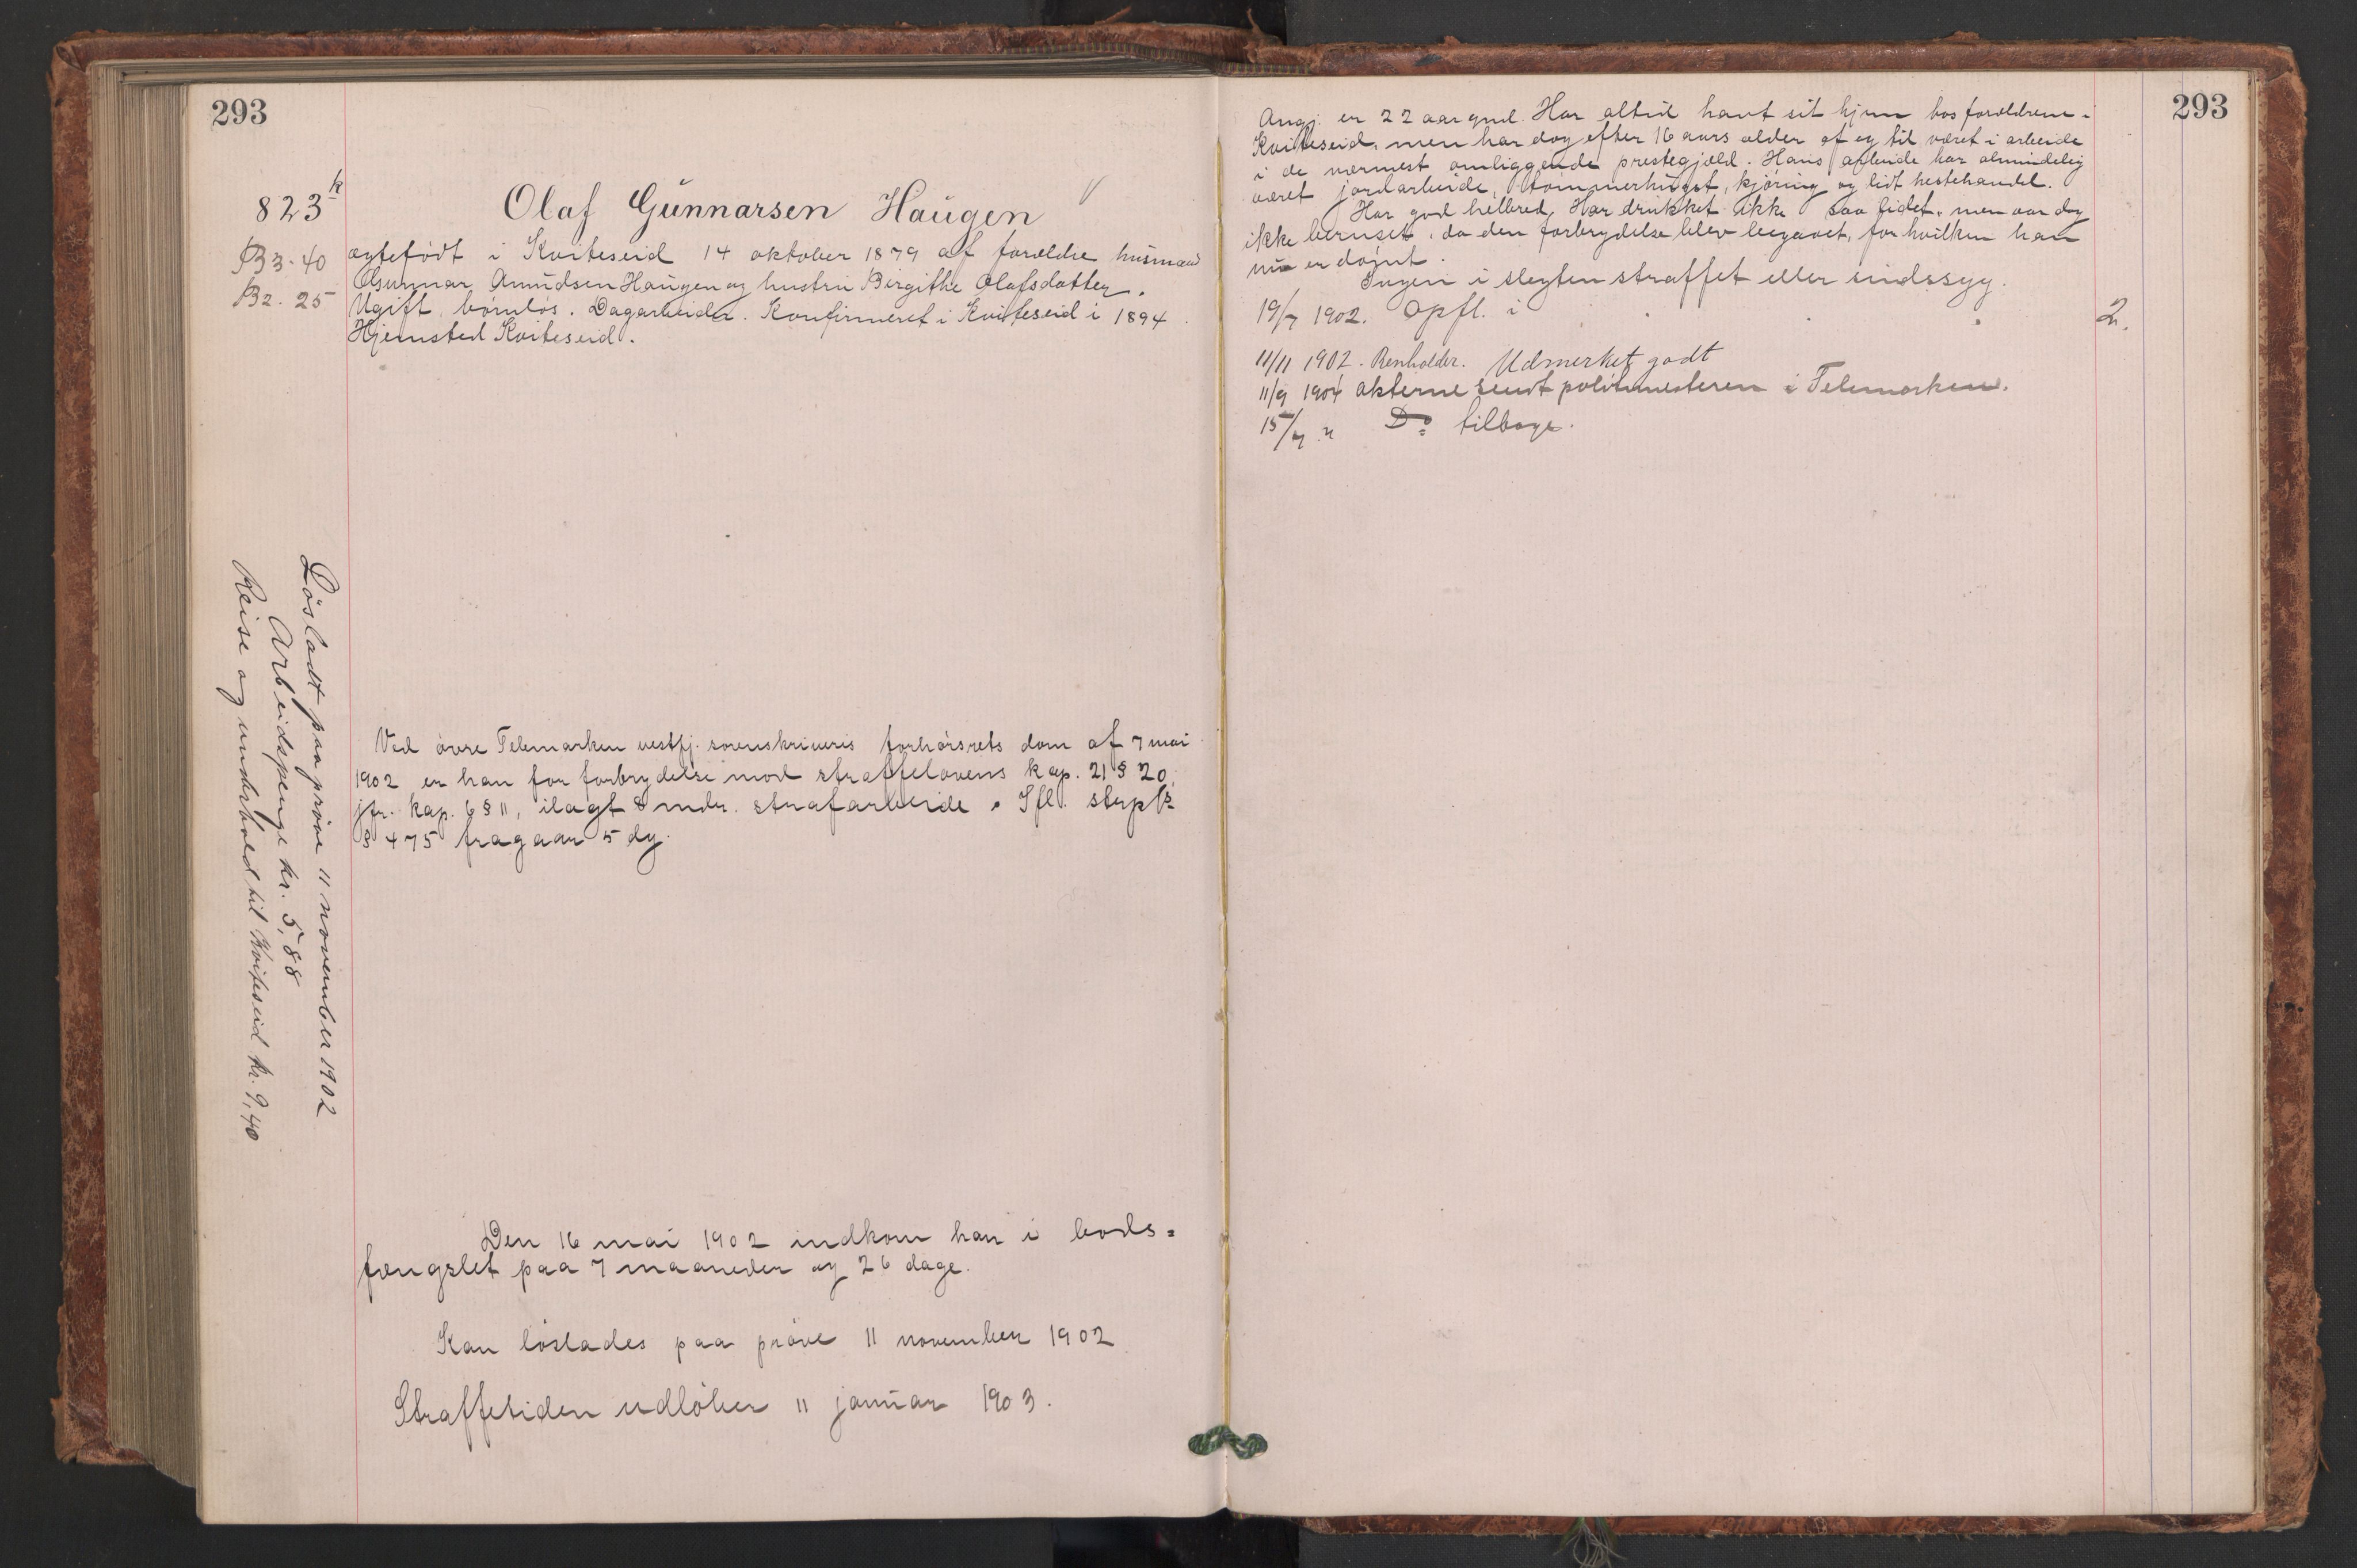 293
823 k
B3. 40
B2. 25
Olaf Gunnarsen Haugen
ægtefødt i Kviteseid 14 oktober 1879 af forældre husmand
Gunnar Amundsen Haugen og hustru Birgithe Olafsdatter.
Ugift, børnløs. Dagarbeider. Konfirmeret i Kviteseid i 1894.
Hjemsted Kviteseid.
Løsladt paa prøve 11 november 1902
Arbeidspenge kr. 5,88
Reise og underhold til Kviteseid kr. 9,40
Ved øvre Telemarken vestfj. sorenskriveris forhørsrets dom af 7 mai
1902 er han for forbrydelse mod straffelovens kap. 21 § 20,
jfr. kap. 6 § 11, ilagt 8 mdr. strafarbeide. Ifl. strpl.
§ 475 fragaar 5 dg.
Den 16 mai 1902 indkom han i bods=
fængslet paa 7 maaneder og 26 dage.
Kan løslades paa prøve 11 november 1902
Straffetiden udløber 11 januar 1903.
293
Angj. er 22 aar gml. Har altid havt sit hjem hos forældrene i
Kviteseid, men har dog efter 16 aars alder af og til været i arbeide
i de nærmest omliggende prestegjæld. Hans arbeide har almindelig
været jordarbeide, tømmerhugst, kjøring og lidt hestehandel.
Har god helbred. Har drukket ikke saa lidet, men var dog
ikke beruset, da den forbrydelse blev begaaet, for hvilken han
nu er dømt.
Ingen i slegten straffet eller sindssyg.
19/7 1902. Opfl. i
2.
11/11 1902. Renholder. Udmerket godt
11/9 1904 akterne sendt politimesteren i Telemarken.
15/9 " Do tilbage.